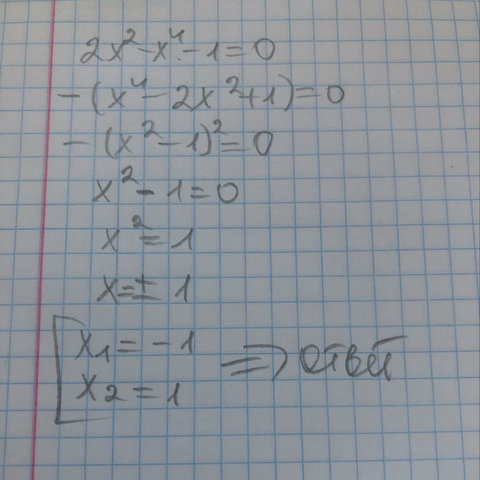 2x²-x⁴-1=0
-(x⁴-2x²+1)=0
-(x²-1)²=0
x²-1=0
x²=1
x=±1
[x₁=-1
x₂=1 => ответ